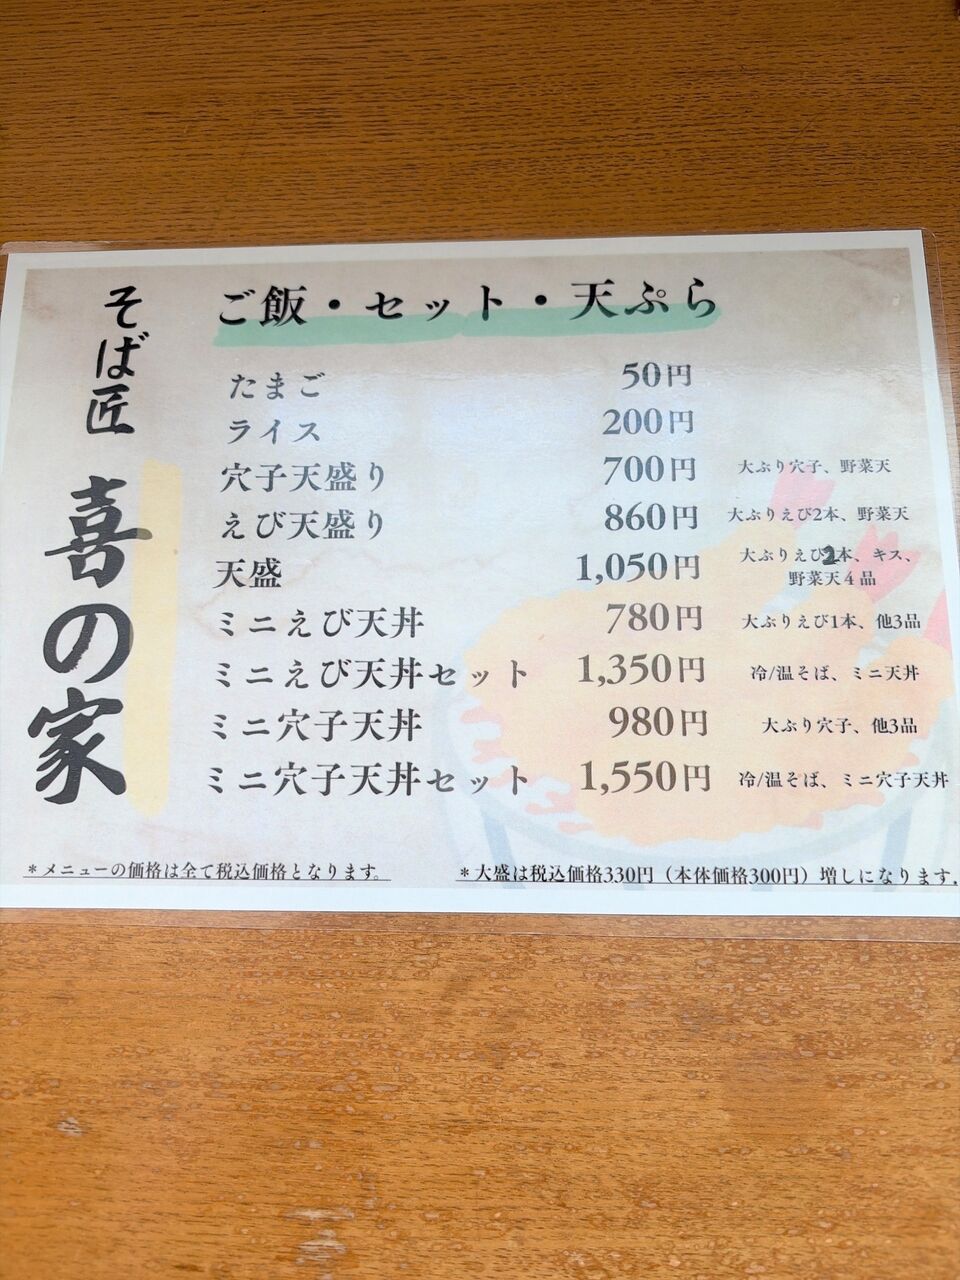 そば匠 喜の家
ご飯・セット・天ぷら
たまご 50円
ライス 200円
穴子天盛り 700円 大ぶり穴子、野菜天
えび天盛り 860円 大ぶりえび2本、野菜天
天盛 1,050円 大ぶりえび2本、キス、
野菜天4品
ミニえび天丼 780円 大ぶりえび1本、他3品
ミニえび天丼セット 1,350円 冷/温そば、ミニ天丼
ミニ穴子天丼 980円 大ぶり穴子、他3品
ミニ穴子天丼セット 1,550円 冷/温そば、ミニ穴子天丼
*メニューの価格は全て税込価格となります。
*大盛は税込価格330円（本体価格300円）増しになります。